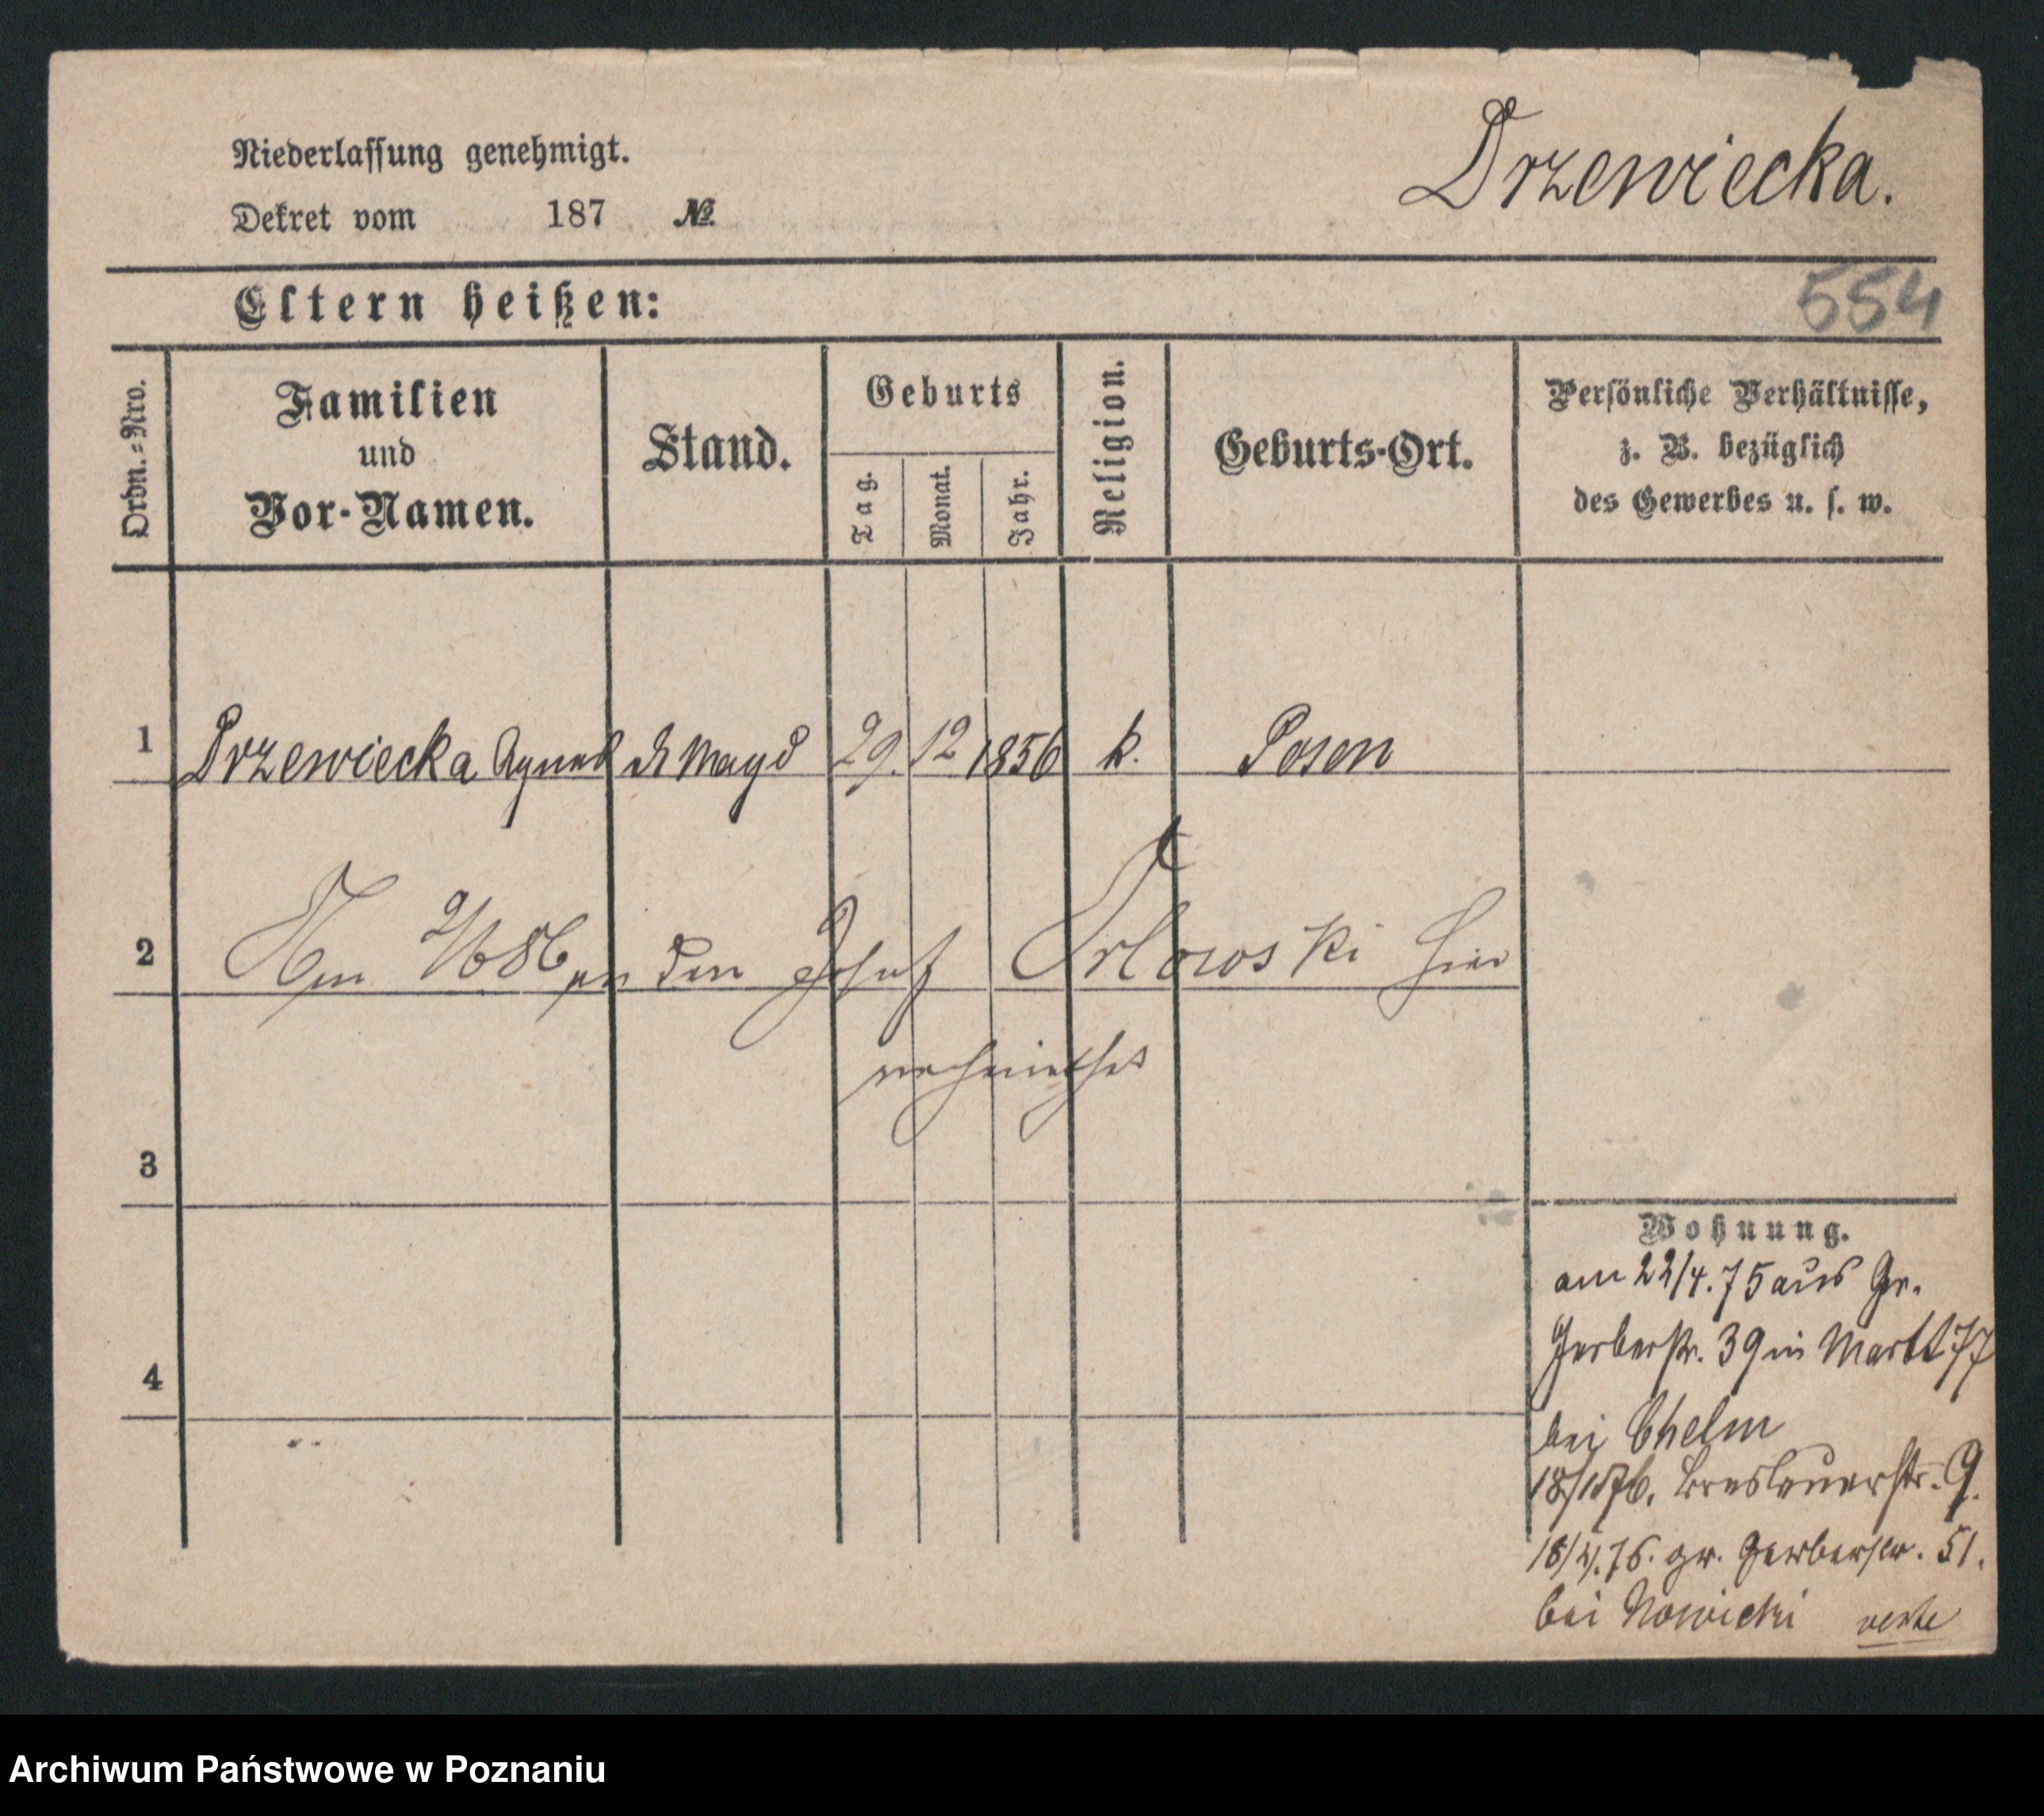 Niederlassung genehmigt.
Dekret vom 187 №
Drzewiecka.
Eltern heißen:
554
Ordn.=Nro.
Familien
und
Vor-Namen.
Stand.
Geburts
Tag.
Monat.
Jahr.
Religion.
Geburts-Ort.
Persönliche Verhältnisse,
z. B. bezüglich
des Gewerbes u. s. w.
1 Drzewiecka Agnes Magd 29. 12 1856 k. Posen
2 Am 9/6 86 an den Josef Orłowski hier
verheirathet
3
4
Wohnung.
am 22/4. 75 aus Gr.
Gerberstr. 39 in Markt 77
bei Chelm
Breslauerstr. 9.
18/4. 76. gr. Gerberstr. 51.
bei Nowicki verte
Archiwum Państwowe w Poznaniu